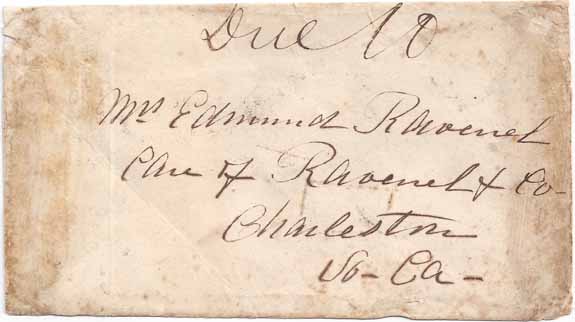 Due 10
Mrs Edmund Ravenel
Care of Ravenel & Co-
Charleston
So- Ca-